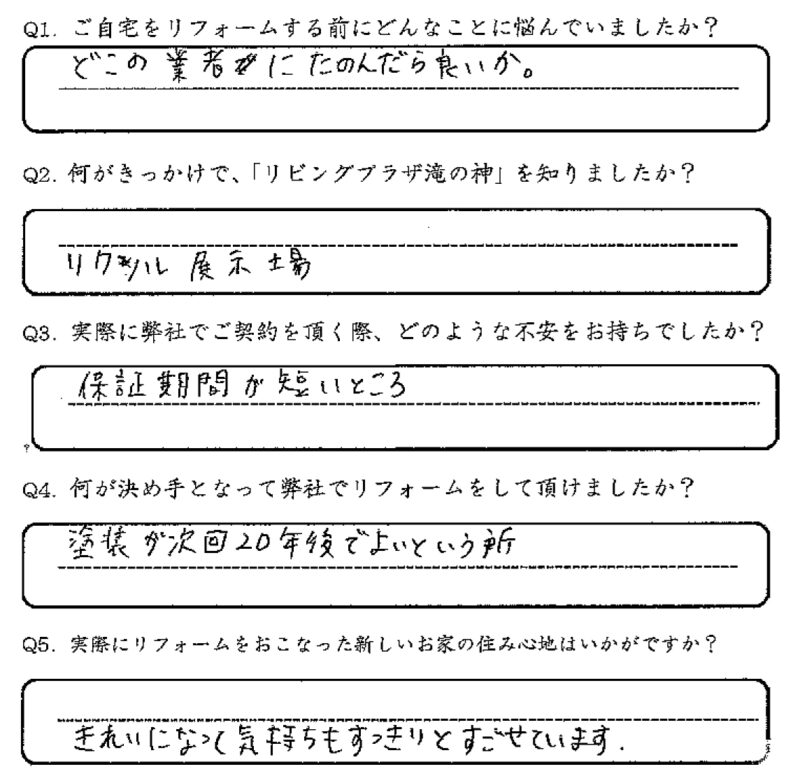 Q1. ご自宅をリフォームする前にどんなことに悩んでいましたか？
どこの業者にたのんだら良いか。
Q2. 何がきっかけで、「リビングプラザ滝の神」を知りましたか？
リクシル展示場
Q3. 実際に弊社でご契約を頂く際、どのような不安をお持ちでしたか？
保証期間が短いところ
Q4. 何が決め手となって弊社でリフォームをして頂けましたか？
塗装が次回20年後でよいという所
Q5. 実際にリフォームをおこなった新しいお家の住み心地はいかがですか？
きれいになって気持ちもすっきりとすごせています.